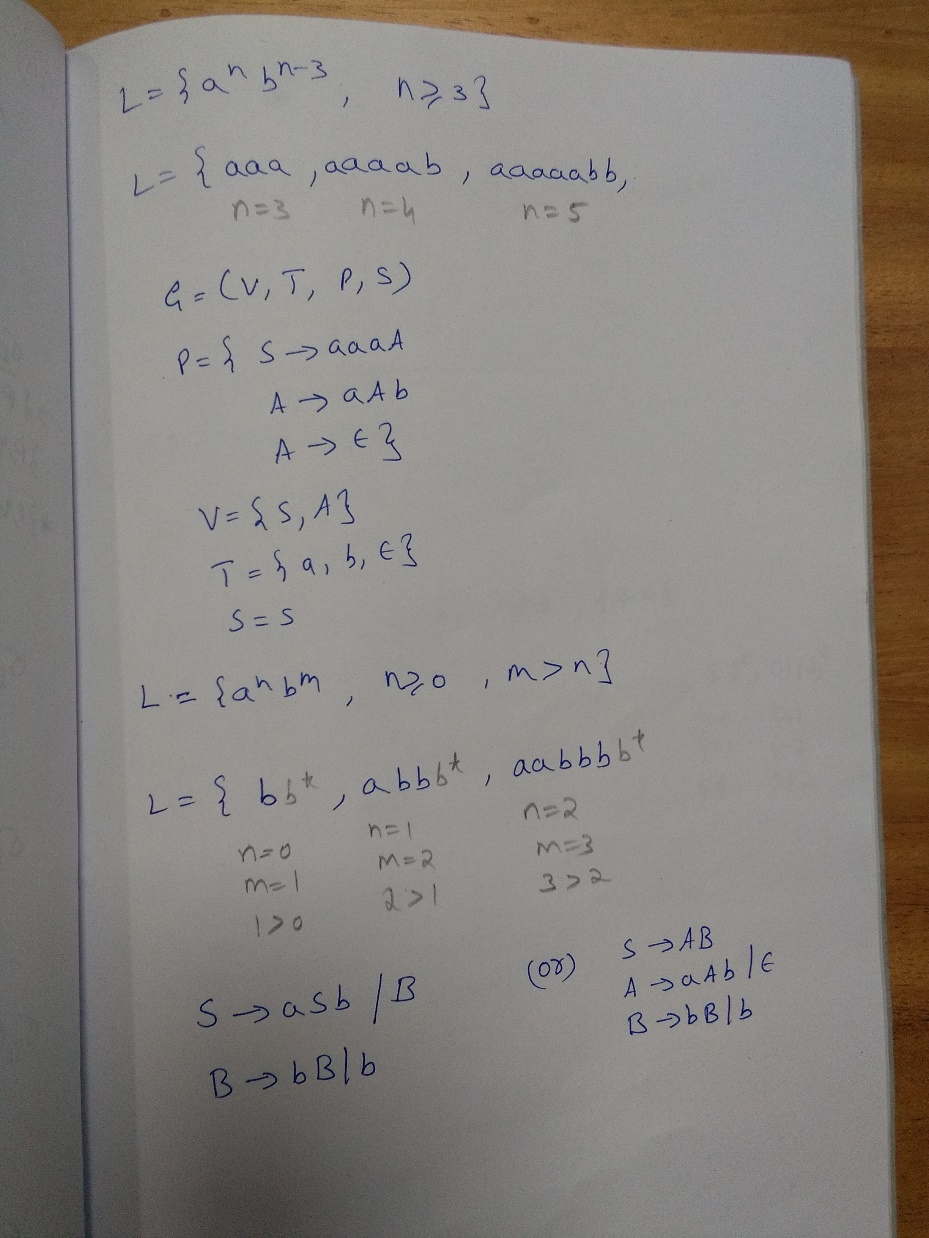 L = { aⁿ bⁿ⁻³ , n ≥ 3 }
L = { aaa , aaaab , aaaaabb,
n=3 n=4 n=5
G = (V, T, P, S)
P = { S → aaaA
A → aAb
A → ε }
V = { S, A }
T = { a, b, ε }
S = S
L = { aⁿ bᵐ , n ≥ 0 , m > n }
L = { bb* , abbb* , aabbbb*
n=0 n=1 n=2
m=1 m=2 m=3
1>0 2>1 3>2
S → aSb / B (or) S → AB
B → bB | b A → aAb | ε
B → bB | b